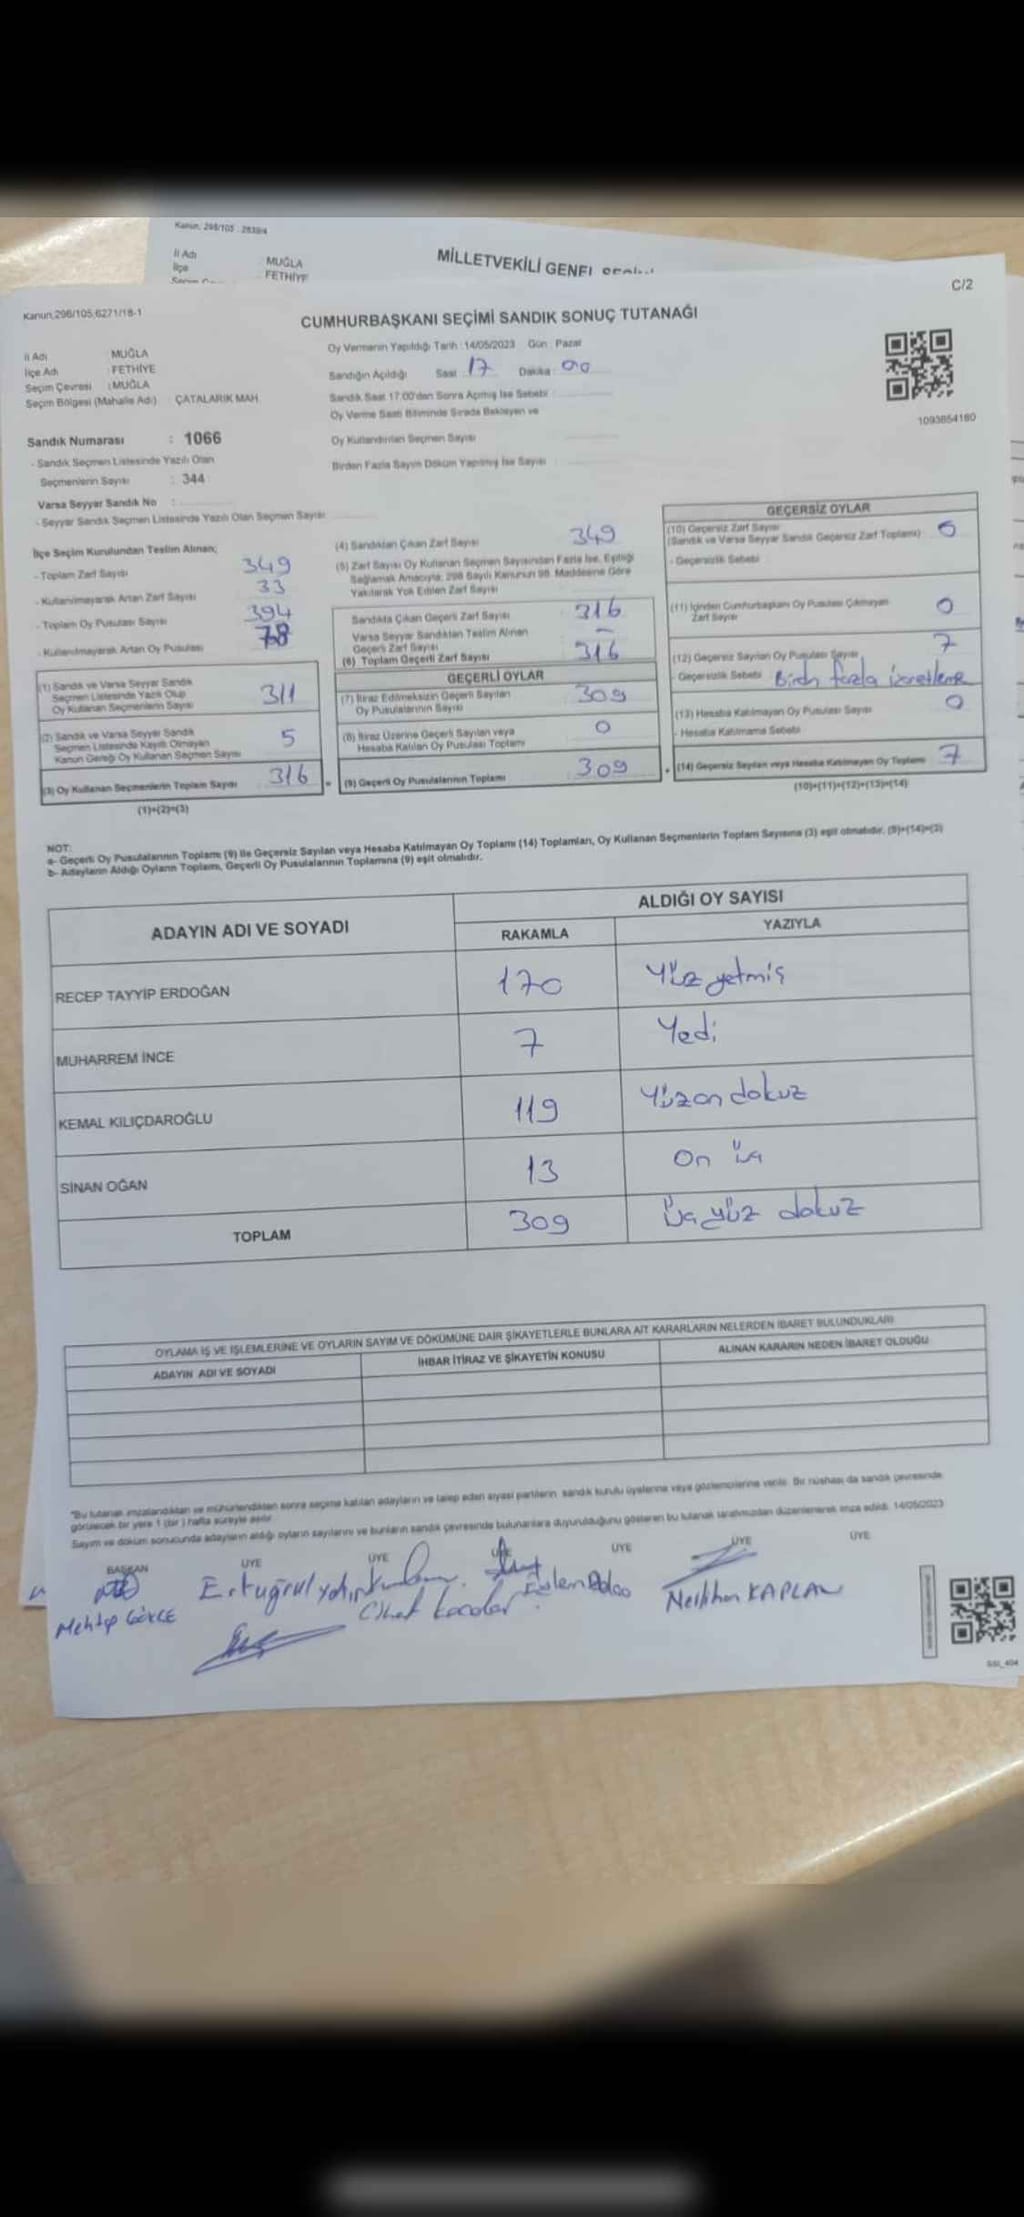 Kanun, 298/105 : 2839/4
İl Adı : MUĞLA
İlçe : FETHİYE
MİLLETVEKİLİ GENEL
C/2
Kanun,298/105,6271/18-1
CUMHURBAŞKANI SEÇİMİ SANDIK SONUÇ TUTANAĞI
İl Adı : MUĞLA
İlçe Adı : FETHİYE
Seçim Çevresi : MUĞLA
Seçim Bölgesi (Mahalle Adı) : ÇATALARIK MAH.
Oy Vermenin Yapıldığı Tarih : 14/05/2023 Gün : Pazar
Sandığın Açıldığı Saat : 17 Dakika : 00
Sandık Saat 17:00'dan Sonra Açılmış İse Sebebi :
Oy Verme Saati Bitiminde Sırada Bekleyen ve
Oy Kullandırılan Seçmen Sayısı
Birden Fazla Sayım Döküm Yapılmış İse Sayısı :
1093854180
Sandık Numarası : 1066
- Sandık Seçmen Listesinde Yazılı Olan
Seçmenlerin Sayısı : 344
Varsa Seyyar Sandık No :
- Seyyar Sandık Seçmen Listesinde Yazılı Olan Seçmen Sayısı
İlçe Seçim Kurulundan Teslim Alınan;
- Toplam Zarf Sayısı 349
- Kullanılmayarak Artan Zarf Sayısı 33
- Toplam Oy Pusulası Sayısı 394
- Kullanılmayarak Artan Oy Pusulası 78
(1) Sandık ve Varsa Seyyar Sandık
Seçmen Listesinde Yazılı Olup
Oy Kullanan Seçmenlerin Sayısı 311
(2) Sandık ve Varsa Seyyar Sandık
Seçmen Listesinde Kayıtlı Olmayan
Kanun Gereği Oy Kullanan Seçmen Sayısı 5
(3) Oy Kullanan Seçmenlerin Toplam Sayısı 316
(1)+(2)=(3)
(4) Sandıktan Çıkan Zarf Sayısı 349
(5) Zarf Sayısı Oy Kullanan Seçmen Sayısından Fazla İse, Eşitliği
Sağlamak Amacıyla; 298 Sayılı Kanunun 98. Maddesine Göre
Yakılarak Yok Edilen Zarf Sayısı
Sandıkta Çıkan Geçerli Zarf Sayısı 316
Varsa Seyyar Sandıktan Teslim Alınan
Geçerli Zarf Sayısı -
(6) Toplam Geçerli Zarf Sayısı 316
GEÇERLİ OYLAR
(7) İtiraz Edilmeksizin Geçerli Sayılan
Oy Pusulalarının Sayısı 309
(8) İtiraz Üzerine Geçerli Sayılan veya
Hesaba Katılan Oy Pusulası Toplamı 0
(9) Geçerli Oy Pusulalarının Toplamı 309
GEÇERSİZ OYLAR
(10) Geçersiz Zarf Sayısı
(Sandık ve Varsa Seyyar Sandık Geçersiz Zarf Toplamı) 0
- Geçersizlik Sebebi
(11) İçinden Cumhurbaşkanı Oy Pusulası Çıkmayan
Zarf Sayısı 0
(12) Geçersiz Sayılan Oy Pusulası Sayısı 7
- Geçersizlik Sebebi Birden fazla işaretleme
(13) Hesaba Katılmayan Oy Pusulası Sayısı 0
- Hesaba Katılmama Sebebi
(14) Geçersiz Sayılan veya Hesaba Katılmayan Oy Toplamı 7
(10)+(11)+(12)+(13)=(14)
NOT:
a- Geçerli Oy Pusulalarının Toplamı (9) ile Geçersiz Sayılan veya Hesaba Katılmayan Oy Toplamı (14) Toplamları, Oy Kullanan Seçmenlerin Toplam Sayısına (3) eşit olmalıdır. (9)+(14)=(3)
b- Adayların Aldığı Oyların Toplamı, Geçerli Oy Pusulalarının Toplamına (9) eşit olmalıdır.
ADAYIN ADI VE SOYADI ALDIĞI OY SAYISI
RAKAMLA YAZIYLA
RECEP TAYYİP ERDOĞAN 170 Yüz yetmiş
MUHARREM İNCE 7 Yedi
KEMAL KILIÇDAROĞLU 119 Yüz on dokuz
SİNAN OĞAN 13 On üç
TOPLAM 309 Üç yüz dokuz
OYLAMA İŞ VE İŞLEMLERİNE VE OYLARIN SAYIM VE DÖKÜMÜNE DAİR ŞİKAYETLERLE BUNLARA AİT KARARLARIN NELERDEN İBARET BULUNDUKLARI
ADAYIN ADI VE SOYADI İHBAR İTİRAZ VE ŞİKAYETİN KONUSU ALINAN KARARIN NEDEN İBARET OLDUĞU
"Bu tutanak imzalandıktan ve mühürlendikten sonra seçime katılan adayların ve talep eden siyasi partilerin sandık kurulu üyelerine veya gözlemcilerine verilir. Bir nüshası da sandık çevresinde
görülecek bir yere 1 (bir ) hafta süreyle asılır.
Sayım ve döküm sonucunda adayların aldığı oyların sayılarını ve bunların sandık çevresinde bulunanlara duyurulduğunu gösteren bu tutanak tarafımızdan düzenlenerek imza edildi. 14/05/2023
BAŞKAN ÜYE ÜYE ÜYE ÜYE ÜYE ÜYE
Mehtap GÖKCE Ertuğrul Neslihan KAPLAN